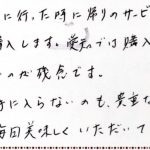 に行った時に帰りのサービ
購入します。愛知では購入
のが残念です。
手に入らないのも、貴重な
毎日美味しくいただいて